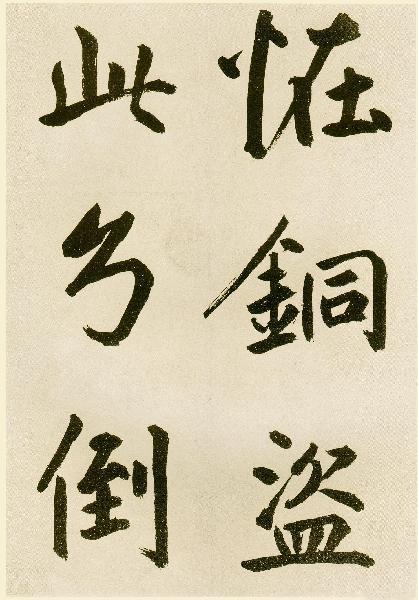 恠銅盜
此倒